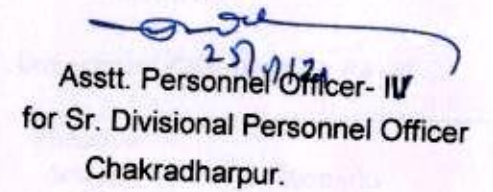 Asstt. Personnel Officer- IV
for Sr. Divisional Personnel Officer
Chakradharpur.